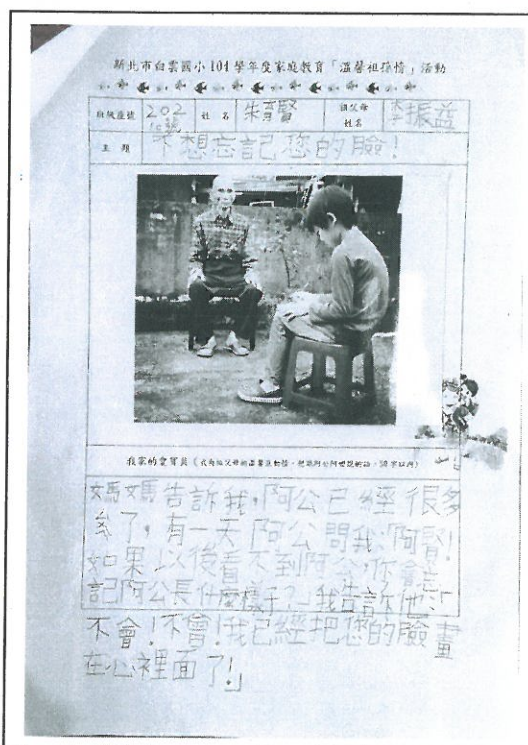 新北市白雲國小 104 學年度家庭教育「溫馨祖孫情」活動
班級座號 202 10號 姓名 朱晉賢 祖父母姓名 李振益
主題 不想忘記您的臉！
我家的老寶貝
媽媽告訴我，阿公已經很多
歲了，有一天阿公問我：「阿賢！
如果以後看不到阿公，你會忘
記阿公長什麼樣子？」我告訴他：「
不會！不會！我已經把您的臉畫
在心裡面了！」